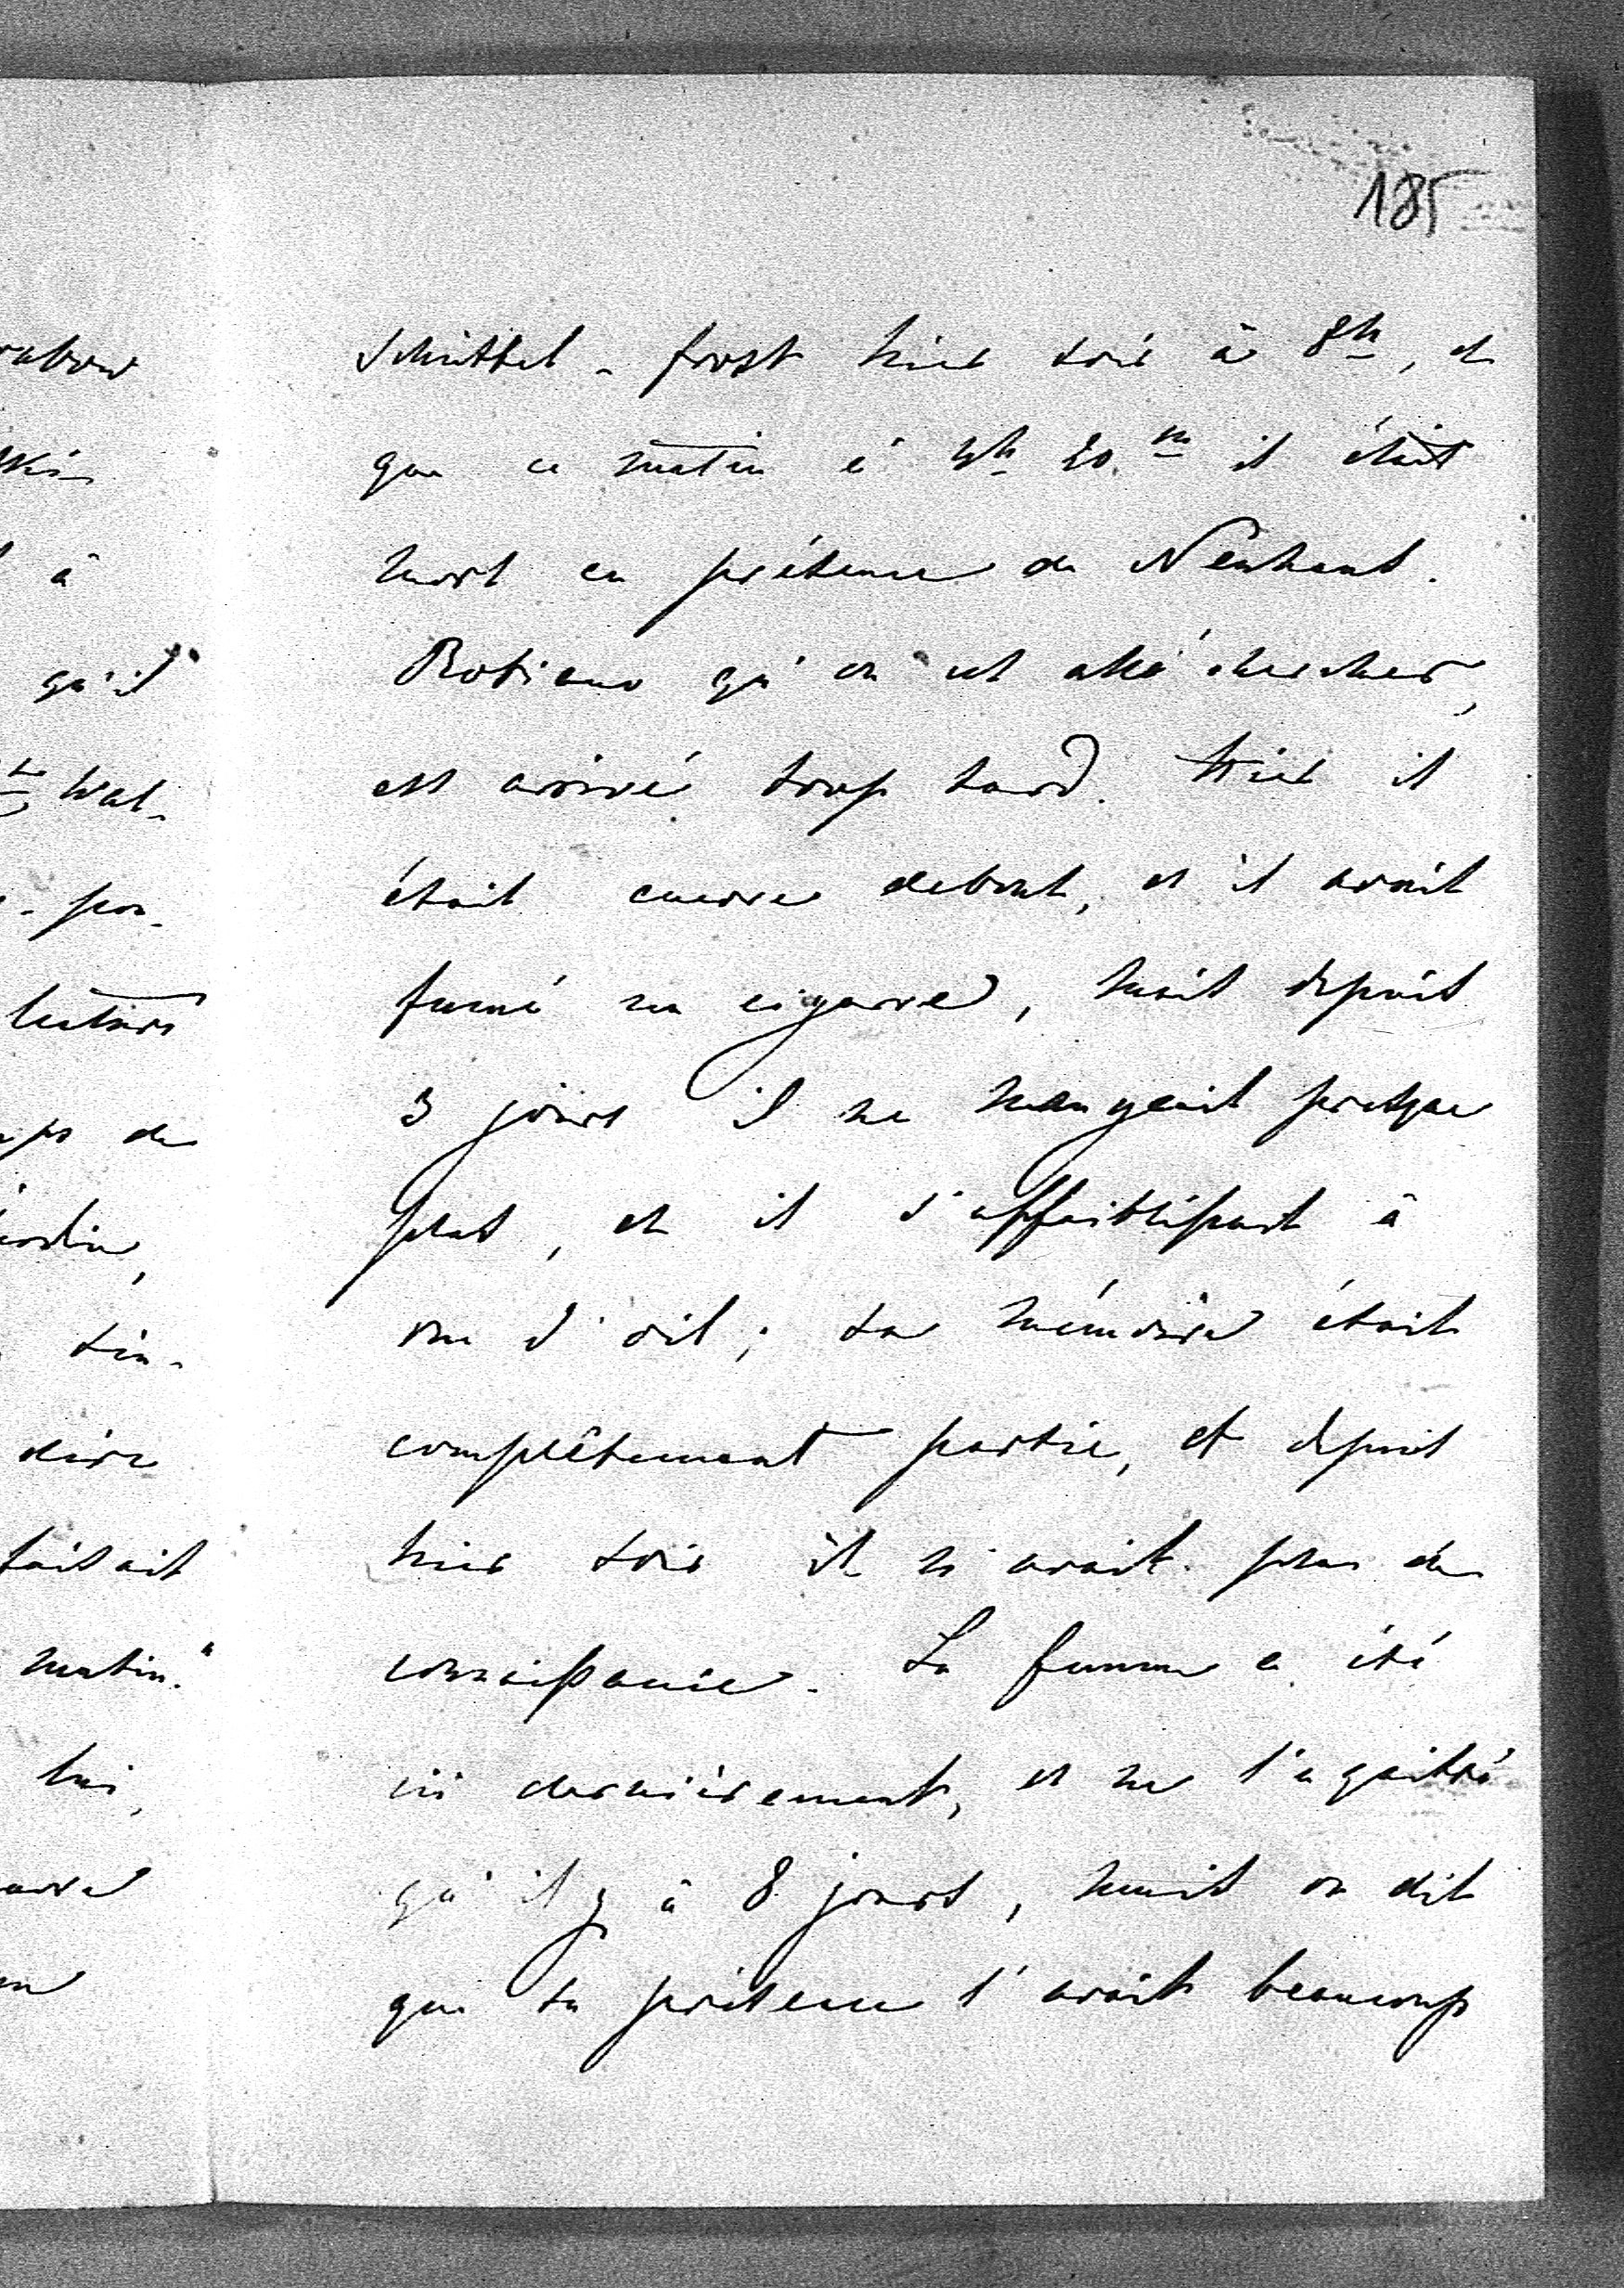 185
Schüttel-frost hier soir à 8h, et
que ce matin à 4h 20m il était
mort en présence de Neuhaus.
Robiano qu'on est allé chercher,
est arrivé trop tard. Hier il
était encore debout, et il avait
fumé un cigare, mais depuis
3 jours il ne mangeait presque
plus, et il s'affaiblissait à
vue d'œil; sa mémoire était
complêtement partie, et depuis
hier soir il n'avait plus de
connaissance. Sa femme a été
ici dernièrement, et ne l'a quitté
qu'il y à 8 jours, mais on dit
que sa présence l'avait beaucoup
à
qu'il
Wat-
de
dire
faisait
matin."
lui,